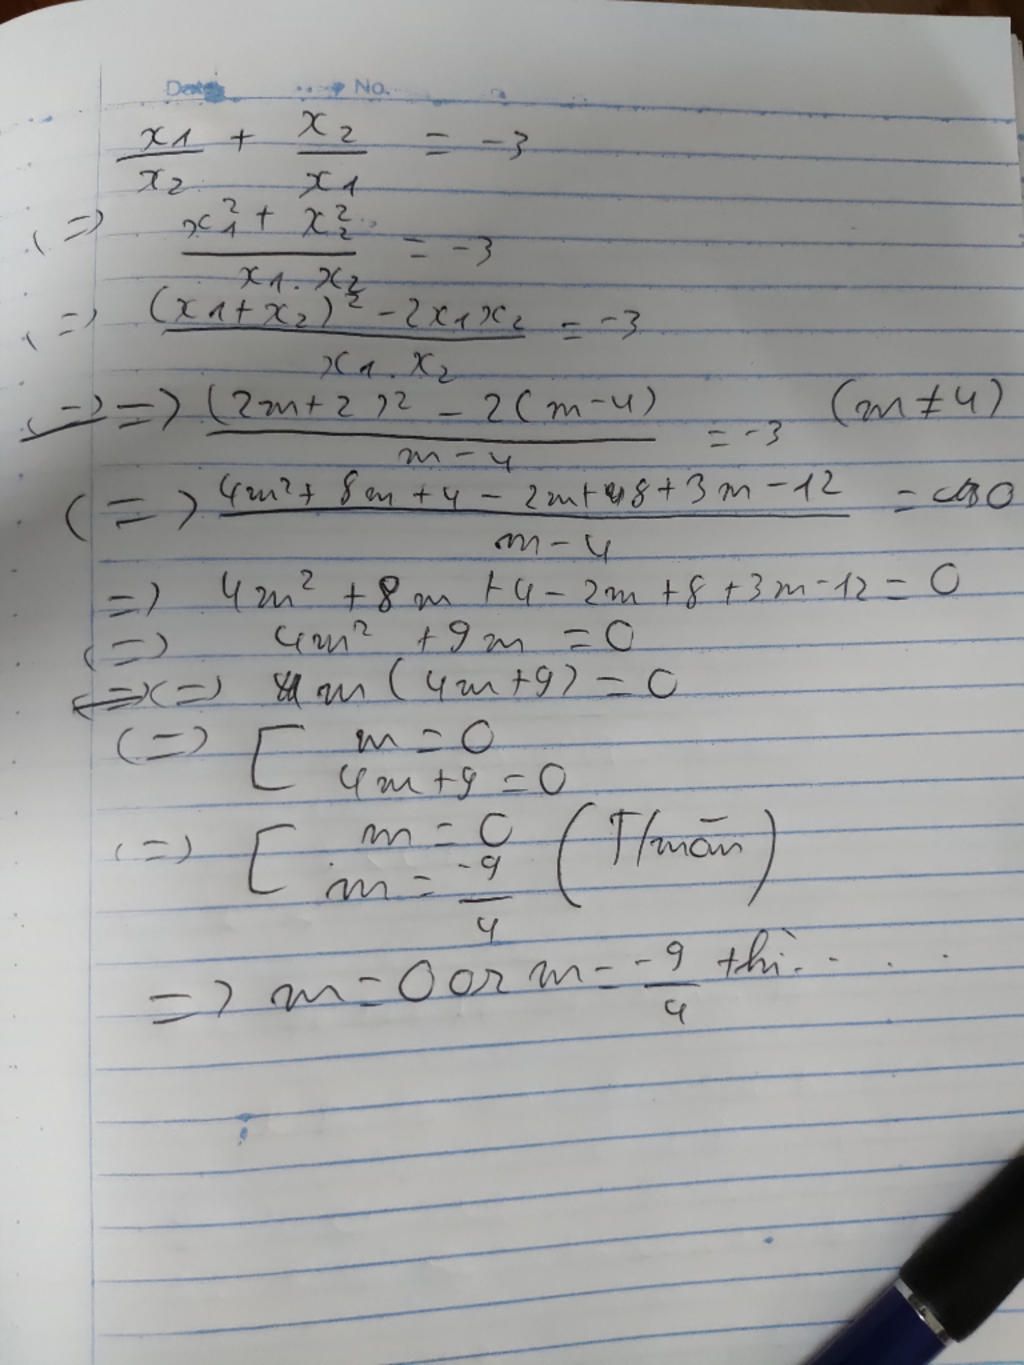 Date No.
x1/x2 + x2/x1 = -3
(=) x1² + x2² / x1.x2 = -3
(=) (x1+x2)² - 2x1x2 / x1.x2 = -3
=) (2m+2)² - 2(m-4) / m-4 = -3 (m≠4)
(=) 4m²+ 8m+4 - 2m+8+3m-12 / m-4 = 0
=) 4m² +8m +4-2m+8+3m-12=0
(=) 4m² +9m =0
(=) m(4m+9)=0
(=) [ m=0
4m+9=0
(=) [ m=0
m= -9/4 (T/mãn)
=) m=0 or m= -9/4 thì....